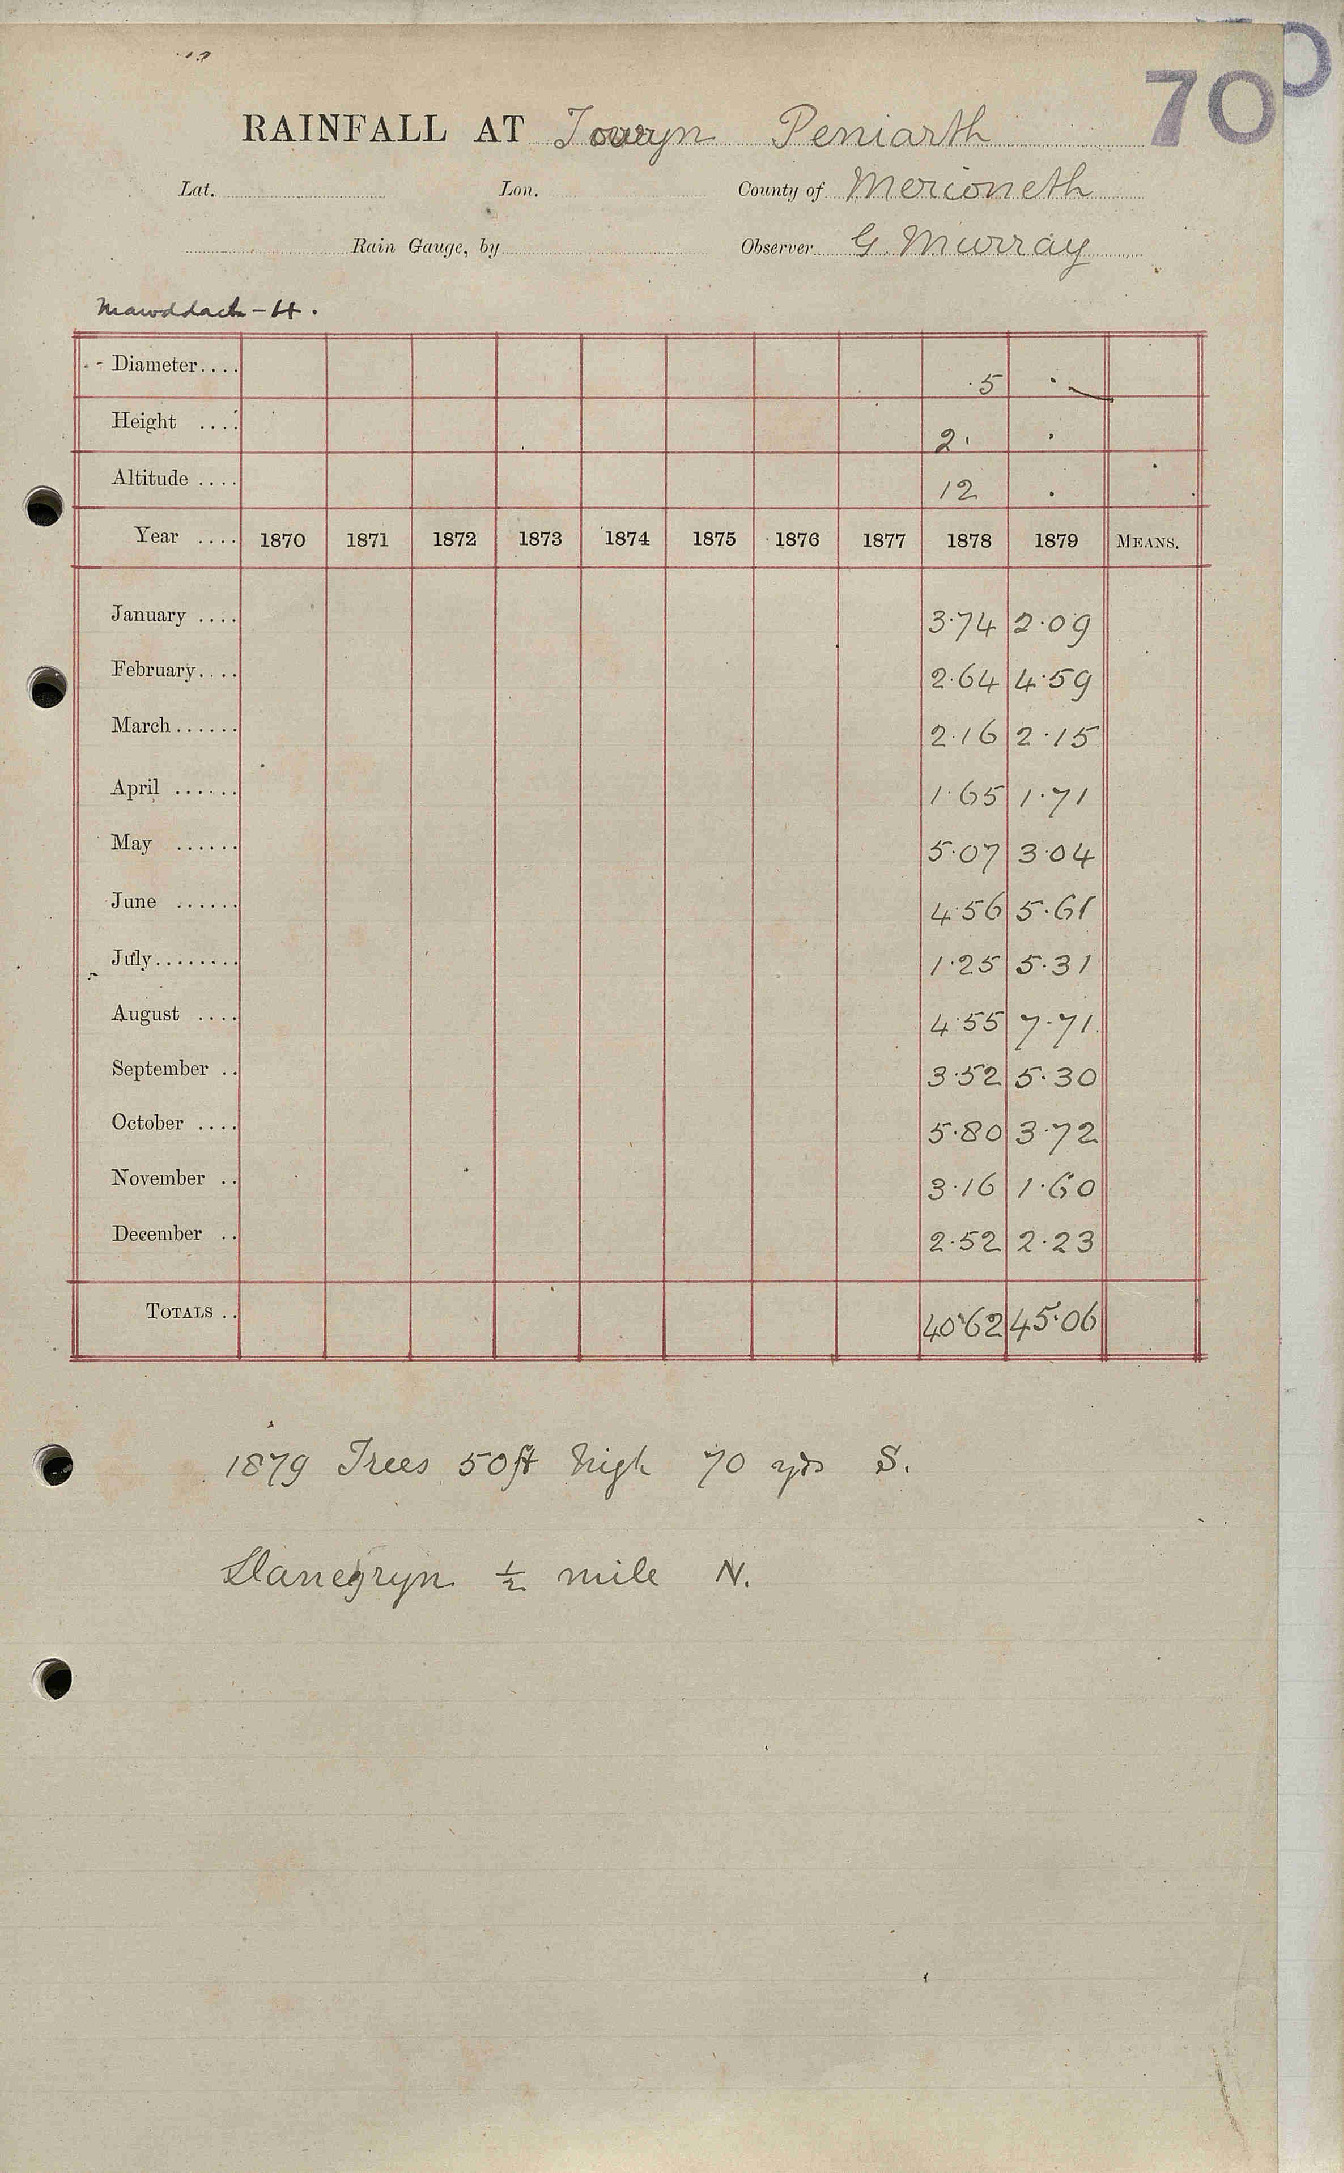 70
RAINFALL AT Towyn Peniarth
Lat. Lon. County of Merioneth
Rain Gauge, by Observer G. Murray
Mawddach - H.
Diameter.... 5 .
Height .... 2. .
Altitude .... 12 .
Year .... 1870 1871 1872 1873 1874 1875 1876 1877 1878 1879 MEANS.
January .... 3.74 2.09
February.... 2.64 4.59
March...... 2.16 2.15
April ...... 1.65 1.71
May ...... 5.07 3.04
June ...... 4.56 5.61
July........ 1.25 5.31
August .... 4.55 7.71
September .. 3.52 5.30
October .... 5.80 3.72
November .. 3.16 1.60
December .. 2.52 2.23
TOTALS .. 40.62 45.06
1879 Trees 50ft high 70 yds S.
Llanegryn ½ mile N.